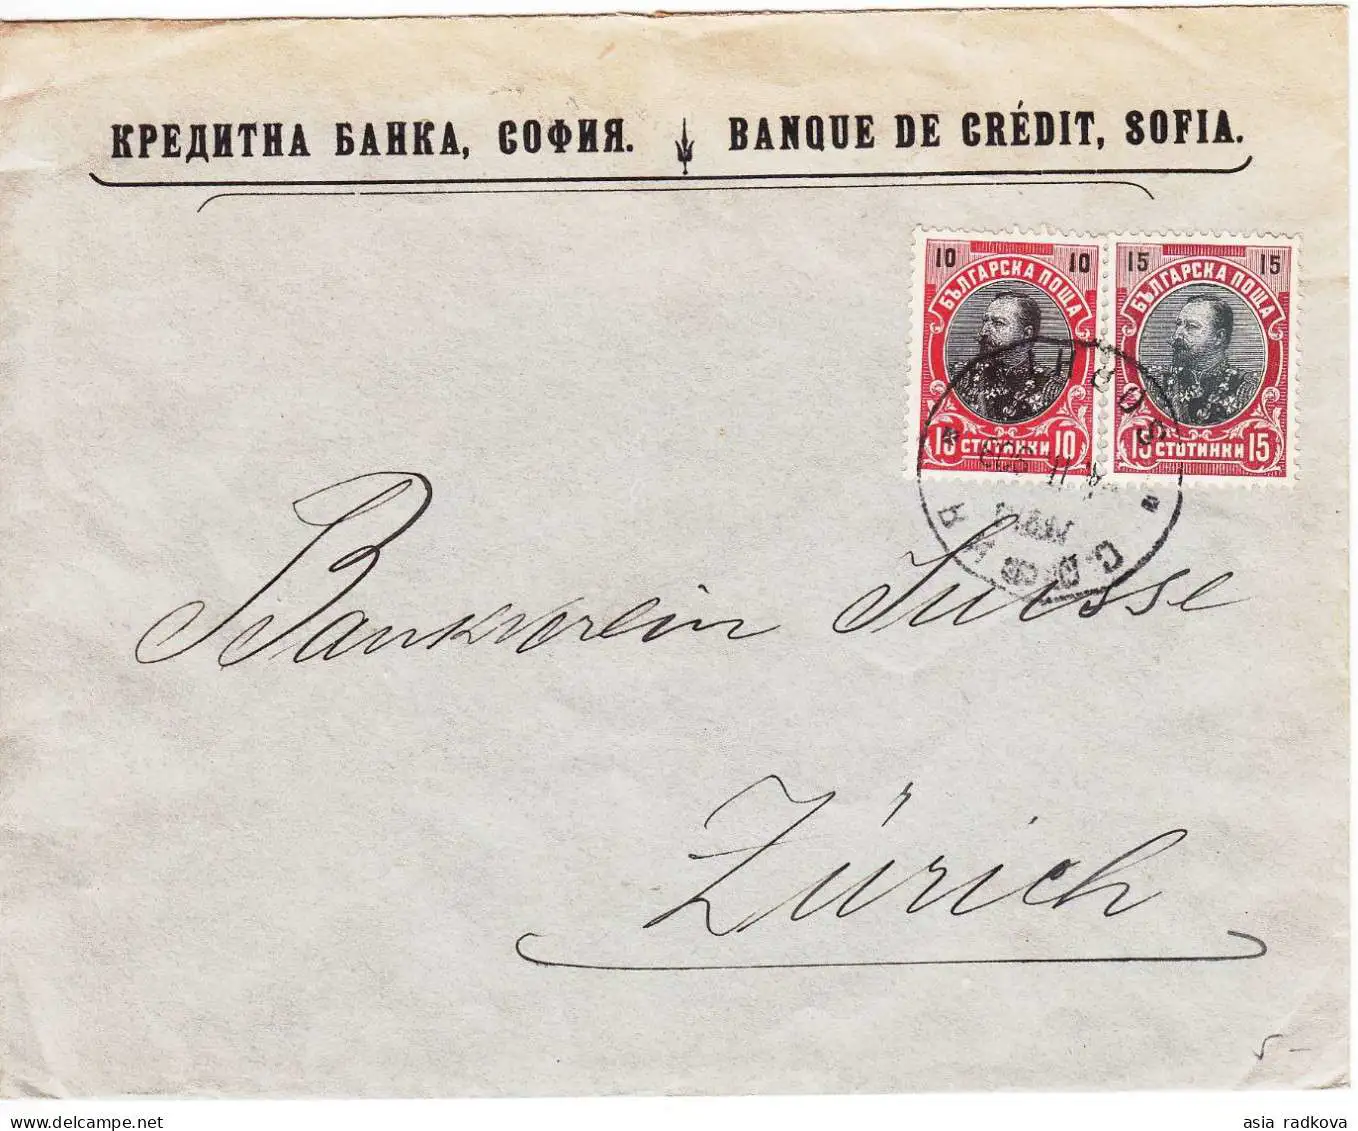 КРЕДИТНА БАНКА, СОФИЯ. BANQUE DE CRÉDIT, SOFIA.
10 10
БЪЛГАРСКА ПОЩА
10 СТОТИНКИ 10
15 15
БЪЛГАРСКА ПОЩА
15 СТОТИНКИ 15
СОФИЯ
Bankverein Suisse
Zürich
5-
delcampe.net
asia radkova